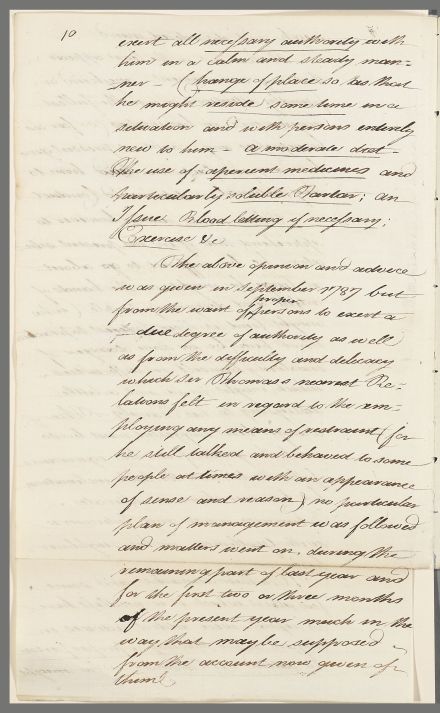 10
exert all necessary authority with
him in a calm and steady man-
-ner - (Change of place so as that
he might reside some time in a
situation and with persons entirely
new to him - a moderate diet -
The use of aperient medicines and
particularly soluble Tartar; an
Issue Blood letting if necessary;
Exercise &c
The above opinion and advice
was given in September 1787 but
from the want of proper persons to exert a
due degree of authority as well
as from the difficulty and delicacy
which Sir Thomas's nearest Re-
lations felt in regard to the em-
ploying any means of restraint (for
he still talked and behaved to some
people at times with an appearance
of sense and reason) no particular
plan of management was followed
and matters went on, during the
remaining part of last year and
for the first two or three months
of the present year much in the
way, that may be supposed
from the account now given of
them.